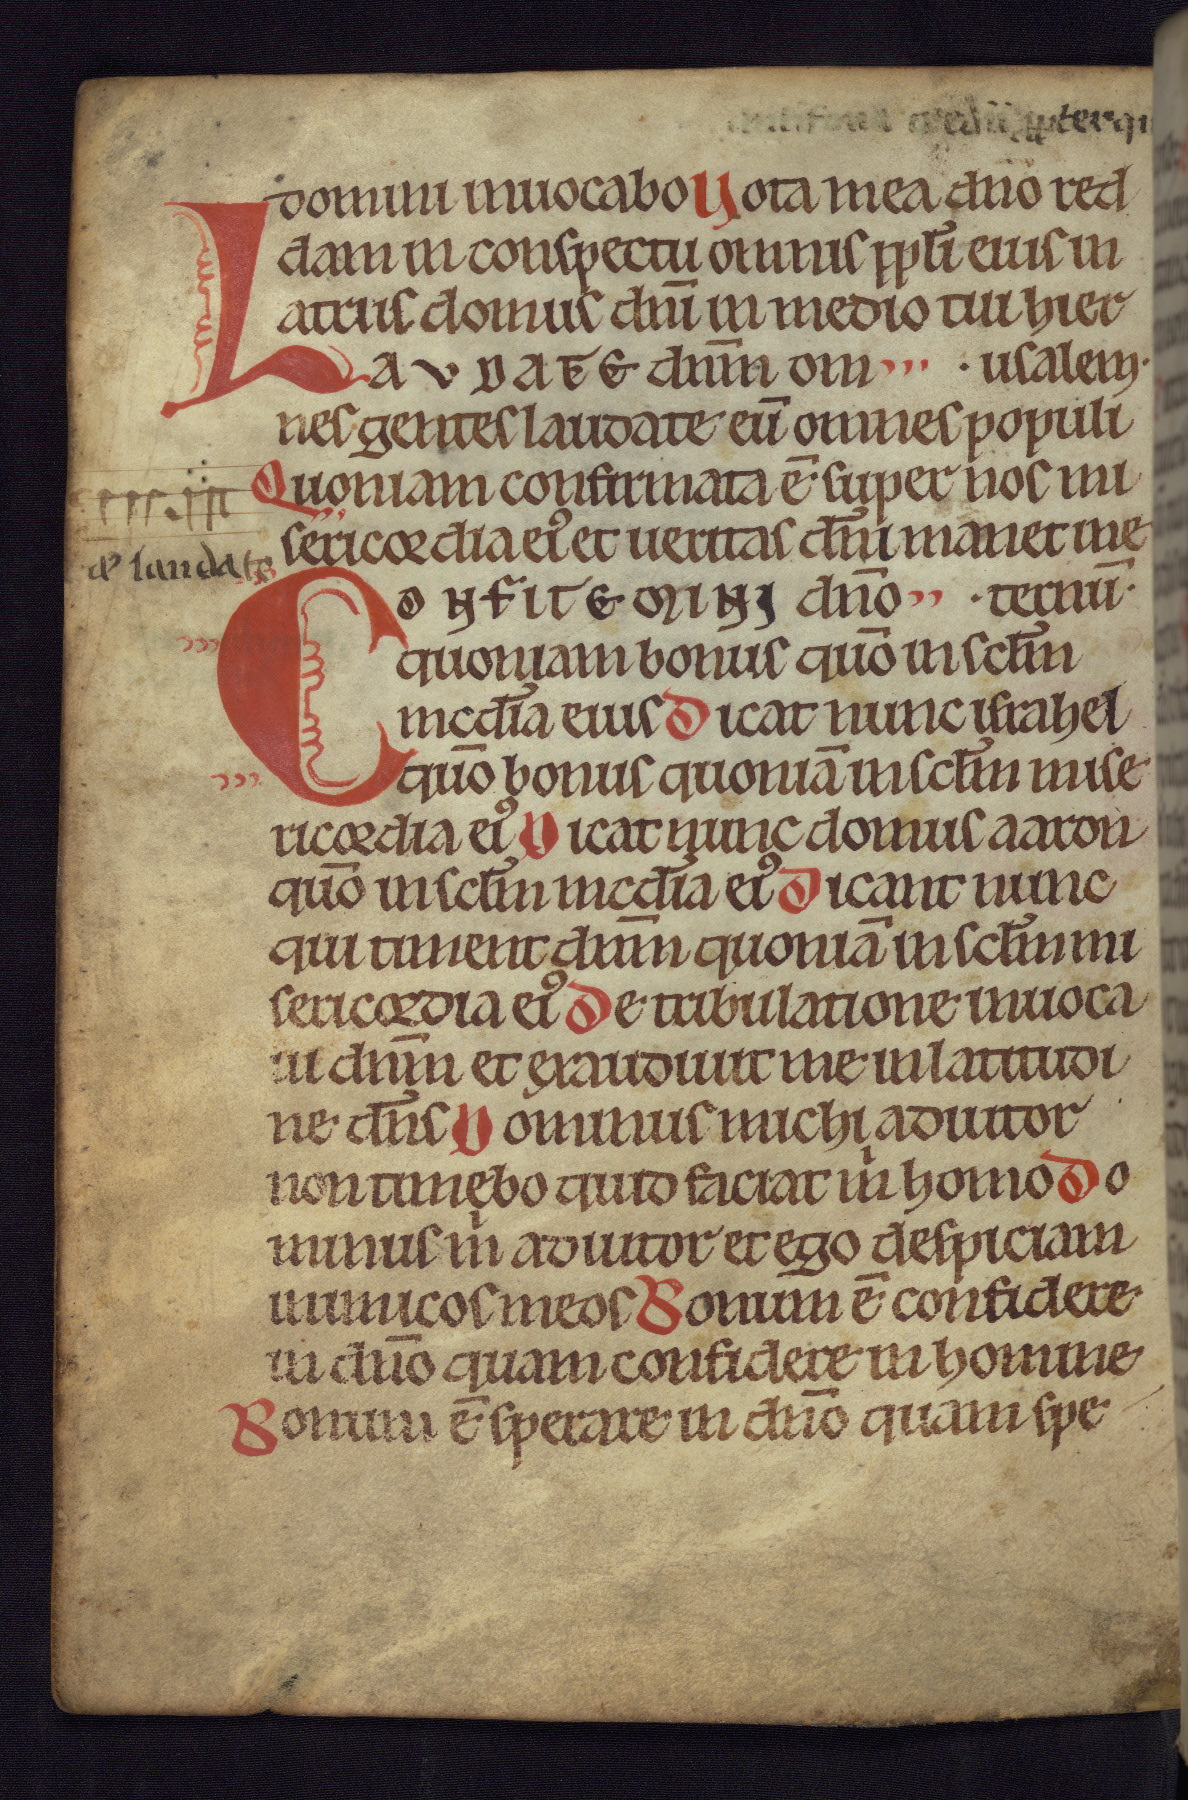 pterqu
domini inuocabo Vota mea dño red
dam in conspectu omnis ppľi eius in
atriis domus dñi in medio tui hier
LAVDATE dñm om · usalem·
nes gentes laudate eū omnes populi
Quoniam confirmata ē super nos mi
sericordia ei⁹ et ueritas dñi manet in e
ꝓ laudate
CONFITEMINI dño · ternū·
quoniam bonus quō in scľm
mcdia eius Dicat nunc israhel
quō bonus quoniā in scľm mise
ricordia ei⁹ Dicat nunc domus aaron
quō in scľm mcdia ei⁹ Dicant nunc
qui timent dñm quoniā in scľm mi
sericordia ei⁹ De tribulatione inuoca
ui dñm et exaudiuit me in latitudi
ne dñs Dominus michi adiutor
non timebo quid faciat m̍ homo Do
minus m̍ adiutor et ego despiciam
inimicos meos Bonum ē confidere
in dño quam confidere in homine
Bonum ē sperare in dño quam spe